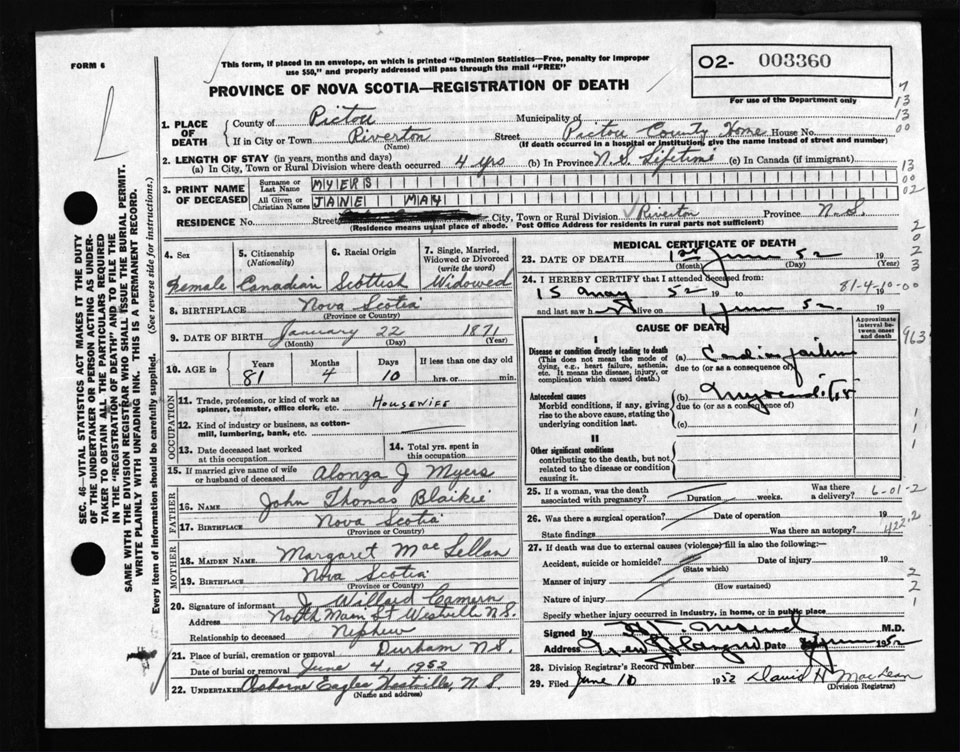 FORM 6
This form, if placed in an envelope, on which is printed "Dominion Statistics—Free, penalty for improper
use $50," and properly addressed will pass through the mail "FREE"
O2- 003360
For use of the Department only
PROVINCE OF NOVA SCOTIA—REGISTRATION OF DEATH
1. PLACE OF DEATH
County of Pictou Municipality of
If in City or Town Riverton Street Pictou County Home House No.
(Name) (If death occurred in a hospital or institution, give the name instead of street and number)
2. LENGTH OF STAY (in years, months and days)
(a) In City, Town or Rural Division where death occurred 4 yrs (b) In Province N.S. Lifetime (c) In Canada (if immigrant)
3. PRINT NAME OF DECEASED
Surname or Last Name MYERS
All Given or Christian Names JANE MAY
RESIDENCE No. Street City, Town or Rural Division Riverton Province N.S.
(Residence means usual place of abode. Post Office Address for residents in rural parts not sufficient)
4. Sex Female
5. Citizenship (Nationality) Canadian
6. Racial Origin Scottish
7. Single, Married, Widowed or Divorced (write the word) Widowed
8. BIRTHPLACE Nova Scotia
(Province or Country)
9. DATE OF BIRTH January 22 1871
(Month) (Day) (Year)
10. AGE in Years Months Days If less than one day old
81 4 10 hrs. or min.
OCCUPATION
11. Trade, profession, or kind of work as spinner, teamster, office clerk, etc. HOUSEWIFE
12. Kind of industry or business, as cotton-mill, lumbering, bank, etc.
13. Date deceased last worked at this occupation
14. Total yrs. spent in this occupation
15. If married give name of wife or husband of deceased Alonza J Myers
FATHER
16. NAME John Thomas Blaikie
17. BIRTHPLACE Nova Scotia
(Province or Country)
MOTHER
18. MAIDEN NAME Margaret MacLellan
19. BIRTHPLACE Nova Scotia
(Province or Country)
20. Signature of informant J Willard Cameron
Address North Main St Westville N.S.
Relationship to deceased Nephew
21. Place of burial, cremation or removal Durham N.S.
Date of burial or removal June 4, 1952
22. UNDERTAKER Osborne Eagles Westville, N.S.
(Name and address)
MEDICAL CERTIFICATE OF DEATH
23. DATE OF DEATH 1st June 52 19
(Month) (Day) (Year)
24. I HEREBY CERTIFY that I attended deceased from:
15 May 52 19 to 19
81-4-10-00
and last saw h alive on 1 June 52 19
CAUSE OF DEATH
Approximate interval between onset and death
I
Disease or condition directly leading to death (a) Cardiac failure
(This does not mean the mode of dying, e.g., heart failure, asthenia, etc. It means the disease, injury, or complication which caused death.)
due to (or as a consequence of)
Antecedent causes (b) Myocarditis
Morbid conditions, if any, giving rise to the above cause, stating the underlying condition last.
due to (or as a consequence of)
(c)
II
Other significant conditions
contributing to the death, but not related to the disease or condition causing it.
25. If a woman, was the death associated with pregnancy? Duration weeks. Was there a delivery?
6-01-2
26. Was there a surgical operation? Date of operation 19
State findings Was there an autopsy?
422.2
27. If death was due to external causes (violence) fill in also the following:—
Accident, suicide or homicide? Date of injury 19
(State which)
Manner of injury
(How sustained)
Nature of injury
Specify whether injury occurred in industry, in home, or in public place
Signed by M.D.
Address New Glasgow Date June 1952
28. Division Registrar's Record Number
29. Filed June 10 1952 David H MacLean
(Division Registrar)
SEC. 46—VITAL STATISTICS ACT MAKES IT THE DUTY
OF THE UNDERTAKER OR PERSON ACTING AS UNDER-
TAKER TO OBTAIN ALL THE PARTICULARS REQUIRED
IN THE "REGISTRATION OF DEATH" AND TO FILE THE
SAME WITH THE DIVISION REGISTRAR WHO SHALL ISSUE THE BURIAL PERMIT.
WRITE PLAINLY WITH UNFADING INK. THIS IS A PERMANENT RECORD.
Every item of information should be carefully supplied. (See reverse side for instructions.)